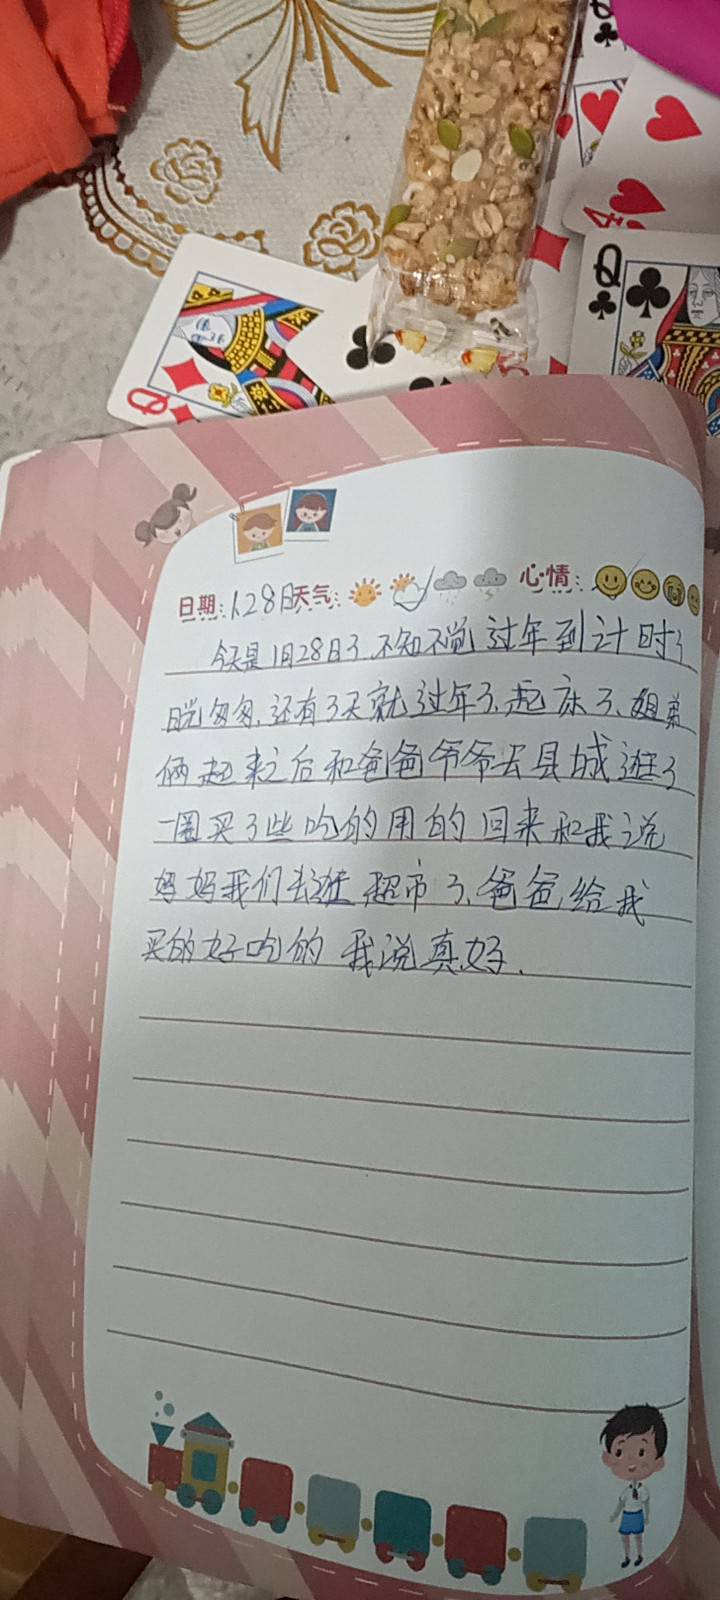 Q
Q
4
Q
日期:1.28日天气: 心情:
今天是1月28日了.不知不觉过年到计时了
时光匆匆.还有3天就过年了.起床了、姐弟
俩起来之后和爸爸爷爷去县城逛了
一圈买了些吃的用的回来和我说
妈妈我们去逛超市了、爸爸给我
买的好吃的 我说真好.